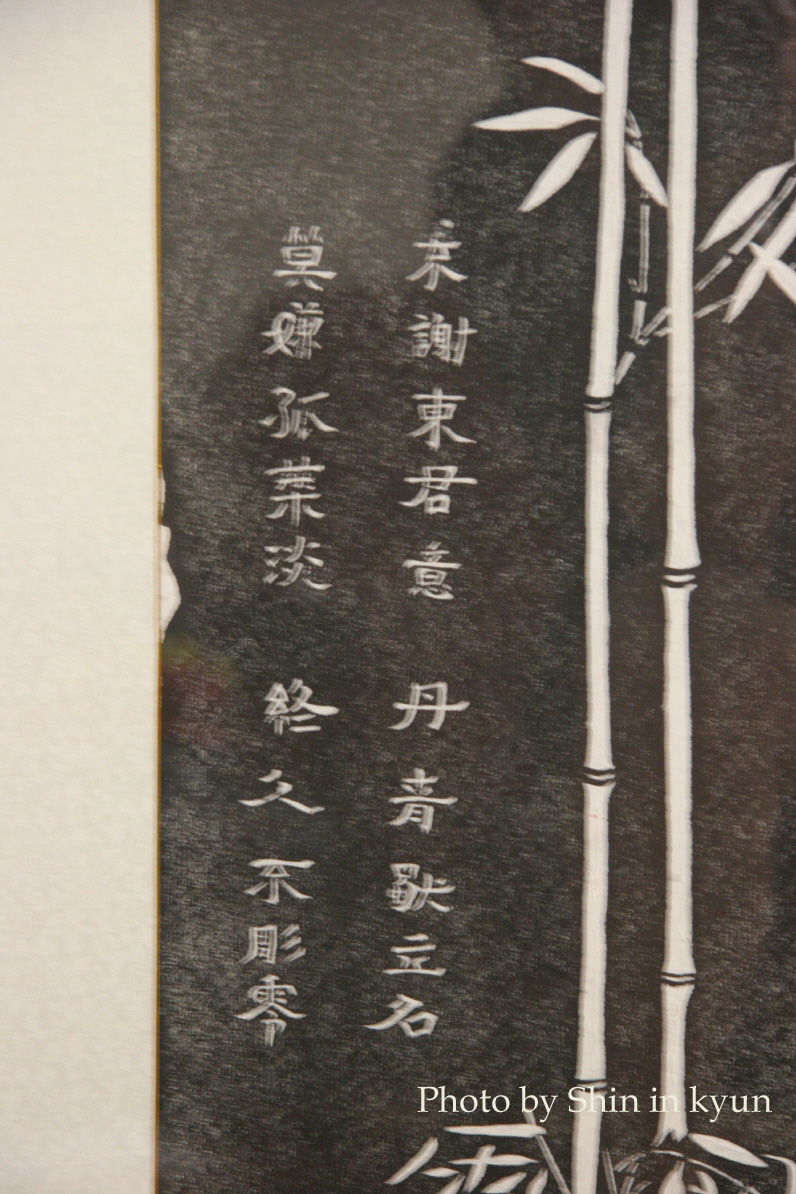 不謝東君意 丹青獨立名
莫嫌孤葉淡 終久不彫零
Photo by Shin in kyun